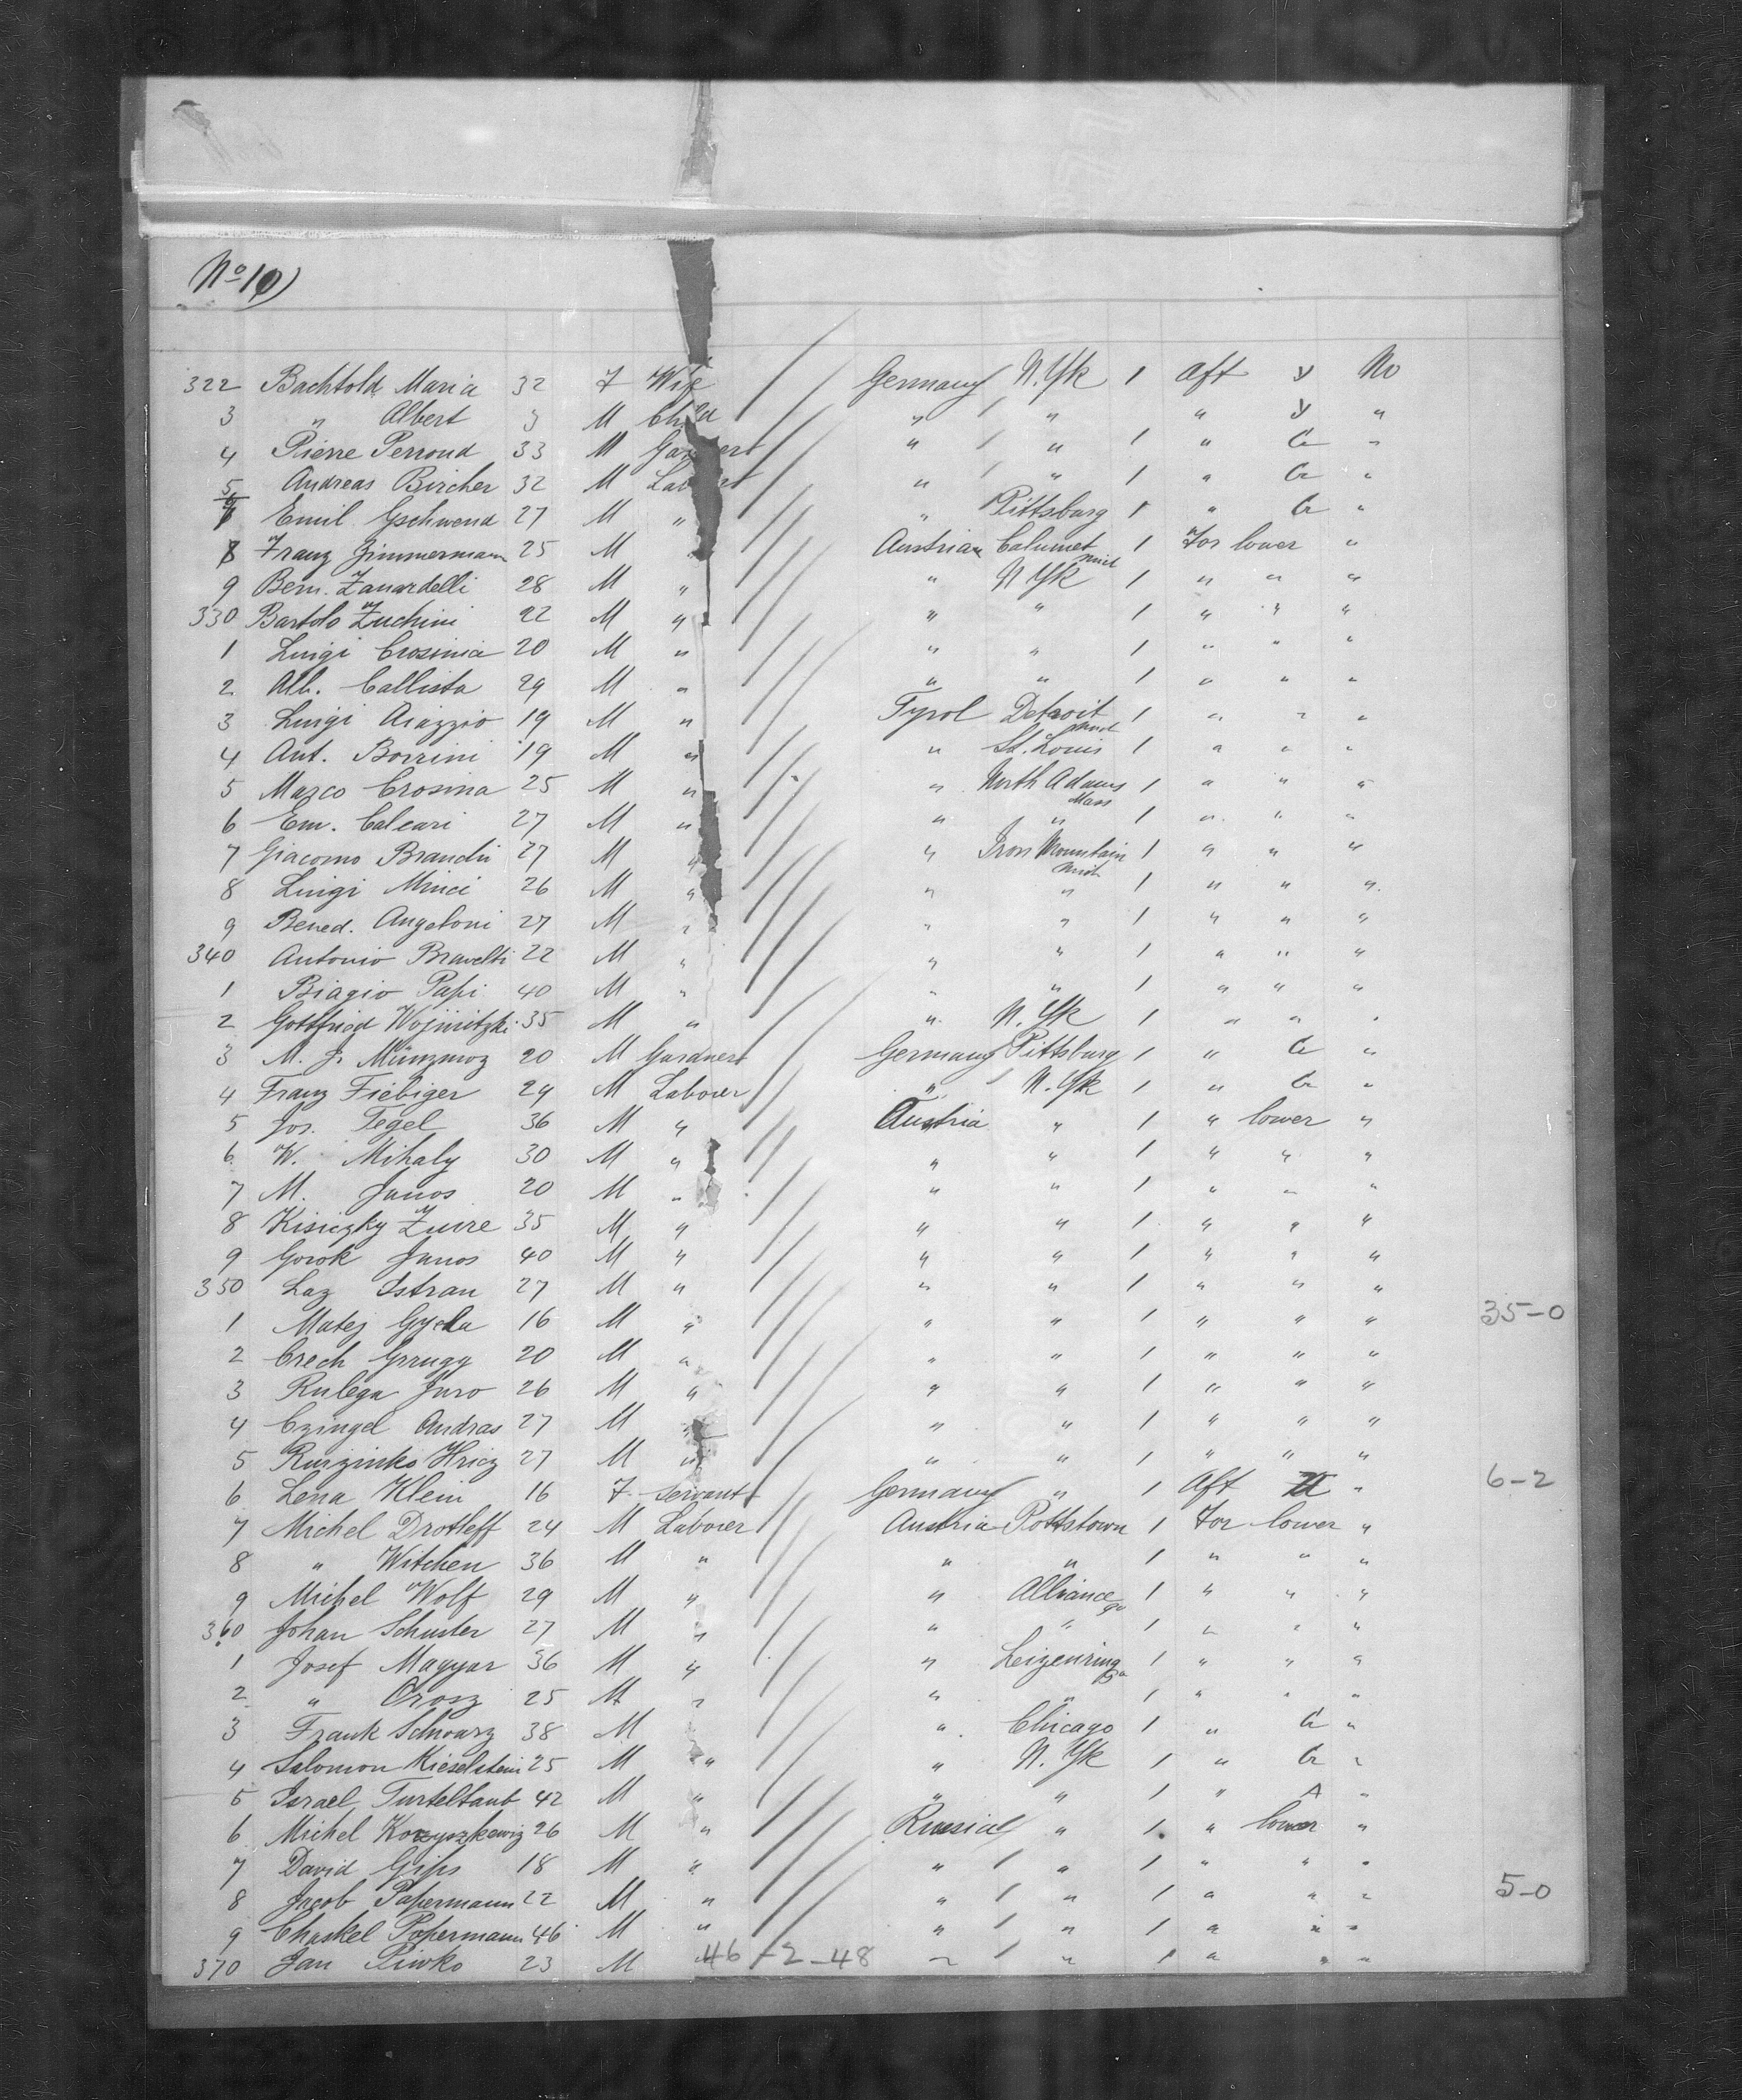 No 10)
322 Bachtold Maria 32 F Wife Germany N. Yk 1 Aft y No
3 " Albert 3 M Child " " " y "
4 Pierre Perroud 33 M " " 1 " G "
5 Andreas Bircher 32 M " " 1 " G "
7 Emil Gschwend 27 M " " Pittsburg 1 " G "
8 Franz Zimmermann 25 M Austrian Calumet Mich 1 For lower "
9 Bern. Zanardelli 28 M " " N Yk 1 " " "
330 Bartolo Zuchini 22 M " " " 1 " " "
1 Luigi Crosinia 20 M " " " 1 " " "
2 Alb. Callista 29 M " " " 1 " " "
3 Luigi Aiazzio 19 M " Tyrol Detroit 1 " " "
4 Ant. Borrini 19 M " " St. Louis 1 " " "
5 Marco Crosina 25 M " " North Adams Mass 1 " " "
6 Em. Calcari 27 M " " " 1 " " "
7 Giacomo Branchi 27 M " " Iron Mountain Mich 1 " " "
8 Luigi Minci 26 M " " " 1 " " "
9 Bened. Angeloni 27 M " " " 1 " " "
340 Antonio 22 M " " " 1 " " "
1 Biagio Papi 40 M " " " 1 " " "
2 Gottfried Wojinitzki 35 M " " N. Yk 1 " " "
3 M. J. 20 M Gardner Germany Pittsburg 1 " G "
4 Franz Fiebiger 29 M Laborer " N. Yk 1 " G "
5 Jos. Tegel 36 M " Austria " 1 " lower "
6 W. Mihaly 30 M " " " 1 " " "
7 M. Janos 20 M " " " 1 " " "
8 Kisiczky 35 M " " " 1 " " "
9 Gorok Janos 40 M " " " 1 " " "
350 Laz Istran 27 M " " " 1 " " "
1 Matej 16 M " " " 1 " " " 35-0
2 Crech 20 M " " " 1 " " "
3 Rulega Juro 26 M " " " 1 " " "
4 Czingel Andras 27 M " " " 1 " " "
5 Hricz 27 M " " " 1 " " "
6 Lena Klein 16 F Servant Germany " 1 Aft " 6-2
7 Michel Drotleff 24 M Laborer Austria Pottstown 1 For lower "
8 " Witchen 36 M " " " 1 " " "
9 Michel Wolf 29 M " " Alliance 1 " " "
360 Johan Schuster 27 M " " " 1 " " "
1 Josef Magyar 36 M " " Leizenring Pa 1 " " "
2 " Orosz 25 M " " " 1 " " "
3 Frank Schwarz 38 M " Chicago 1 " G "
4 Salomon Kieselstein 25 M " " N. Yk 1 " G "
5 Israel Turteltaub 42 M " " " 1 " A "
6 Michel 26 M " Russia " 1 " lower "
7 David Gips 18 M " " " 1 " " "
8 Jacob Papermann 22 M " " " 1 " " " 5-0
9 Chaskel Papermann 46 M " " " 1 " " "
370 Jan Piwko 23 M " 46-2-48 " " 1 " " "